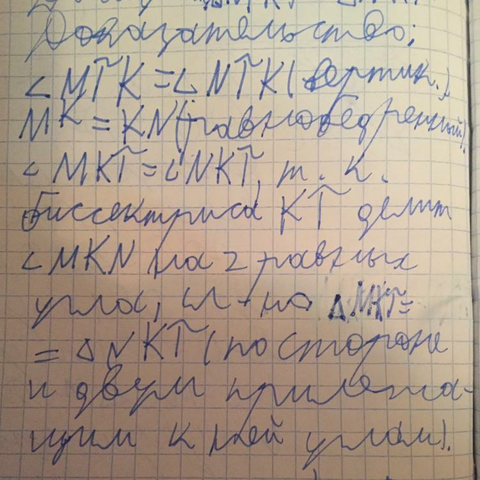 △MKT △
Доказательство:
∠MTK=∠NTK(вертик.),
MK=KN(равнобедренный),
∠MKT=∠NKT, т. к.
биссектриса KT делит
∠MKN на 2 равных
угла, сл-но △MKT=
=△NKT(по стороне
и двум прилежа-
щим к ней углам).